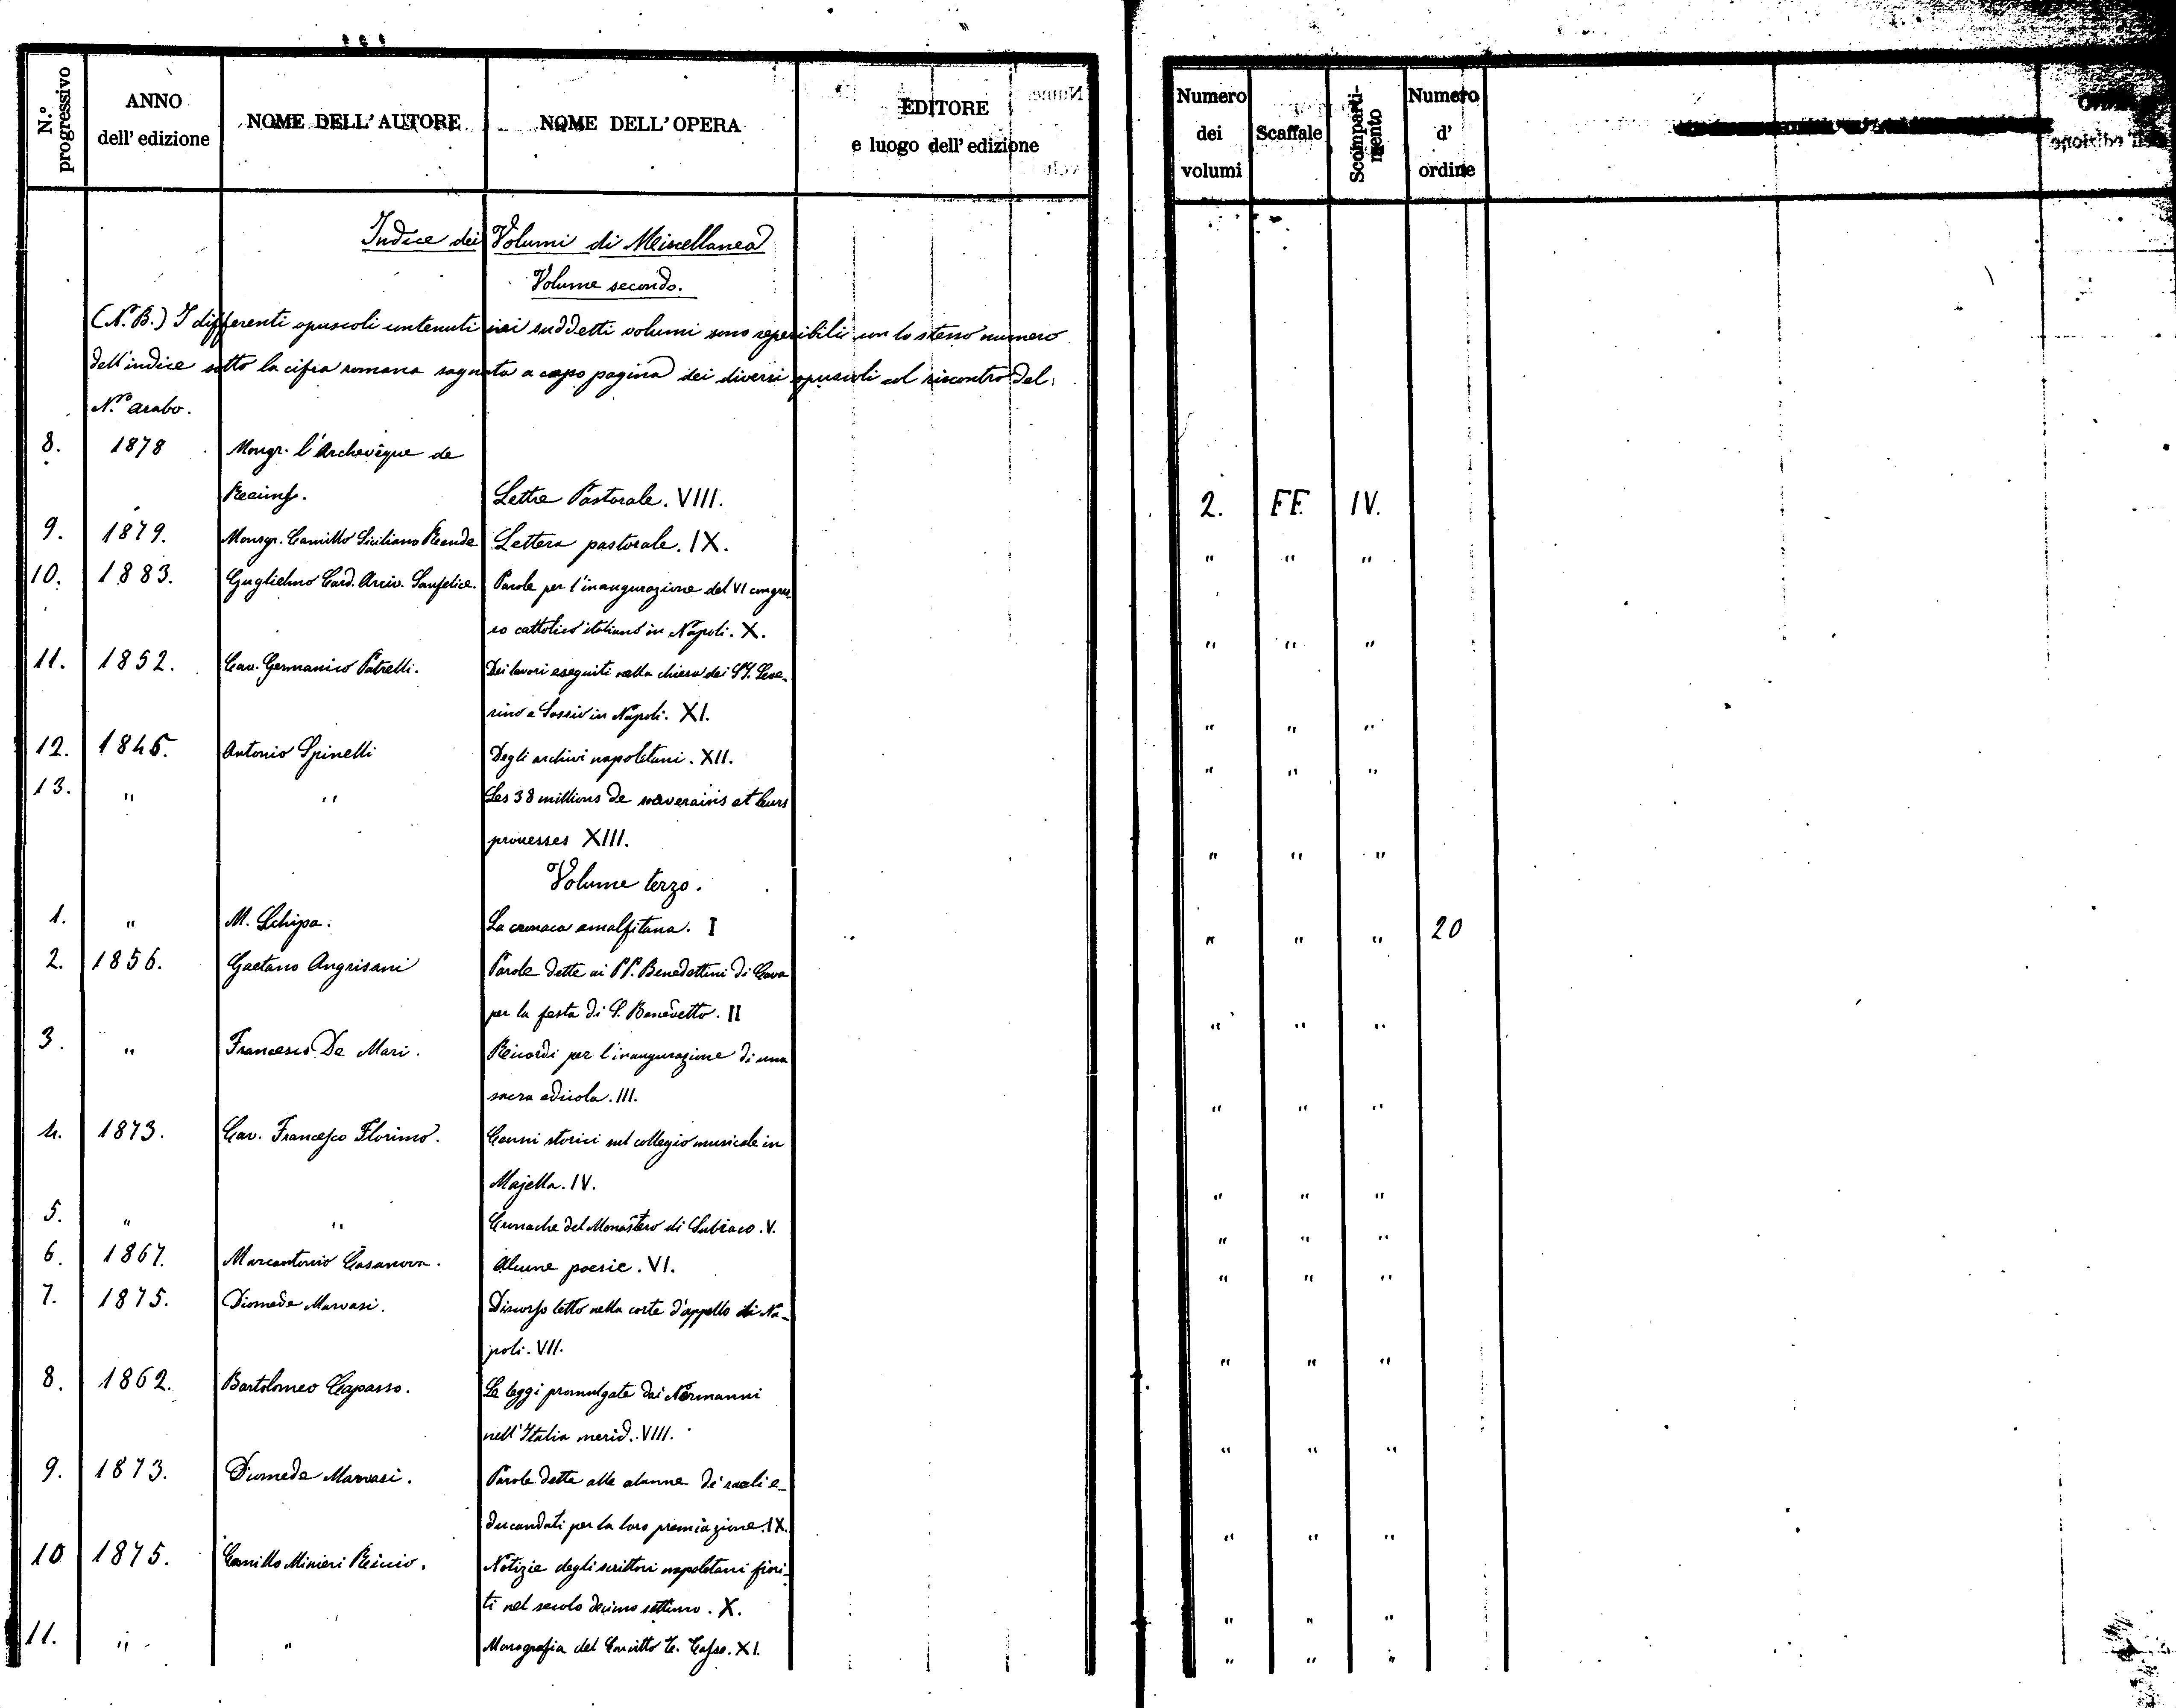 N.° progressivo
ANNO dell' edizione
NOME DELL' AUTORE
NOME DELL' OPERA
EDITORE e luogo dell' edizione
Numero dei volumi
Scaffale
Scomparti-mento
Numero d' ordine
Indice dei Volumi di Miscellanea
Volume secondo.
(N.B.) I differenti opuscoli contenuti nei suddetti volumi sono reperibili con lo stesso numero
dell'indice sotto la cifra romana segnata a capo pagina dei diversi opuscoli col riscontro del
N.ro arabo.
8. 1878 Monsgr. l'Archevêque de
Lettre Pastorale. VIII. 2. FF. IV.
9. 1879. Monsgr. Camillo Siciliano Rende Lettera pastorale. IX. " " "
10. 1883. Guglielmo Card. Arciv. Sanfelice. Parole per l'inaugurazione del VI congres
so cattolico italiano in Napoli. X. " " "
11. 1852. Cav. Germanico Patrelli. Dei lavori eseguiti nella chiesa dei SS. Seve-
rino e Sossio in Napoli. XI. " " "
12. 1845. Antonio Spinelli Degli archivi napoletani. XII. " " "
13. " " Les 38 millions de souverains et leurs
prouesses XIII. " " "
Volume terzo.
1. " M. Schipa. La cronaca amalfitana. I " " " 20
2. 1856. Gaetano Angrisani Parole dette ai PP. Benedettini di Cava
per la festa di S. Benedetto. II " " "
3. " Francesco De Mari. Ricordi per l'inaugurazione di una
sacra edicola. III. " " "
4. 1873. Cav. Francesco Florimo. Cenni storici sul collegio musicale in
Majella. IV. " " "
5. " " Cronache del Monastero di Subiaco. V. " " "
6. 1867. Marcantonio Casanova. Alcune poesie. VI. " " "
7. 1875. Diomede Marvasi. Discorso letto nella corte d'appello di Na-
poli. VII. " " "
8. 1862. Bartolomeo Capasso. Le leggi promulgate dai Normanni
nell'Italia merid. VIII. " " "
9. 1873. Diomede Marvasi. Parole dette alle alunne de' reali e-
ducandati per la loro premiazione. IX. " " "
10 1875. Camillo Minieri Riccio. Notizie degli scrittori napoletani fiori-
ti nel secolo decimo settimo. X. " " "
11. " " Monografia del XI. " " "